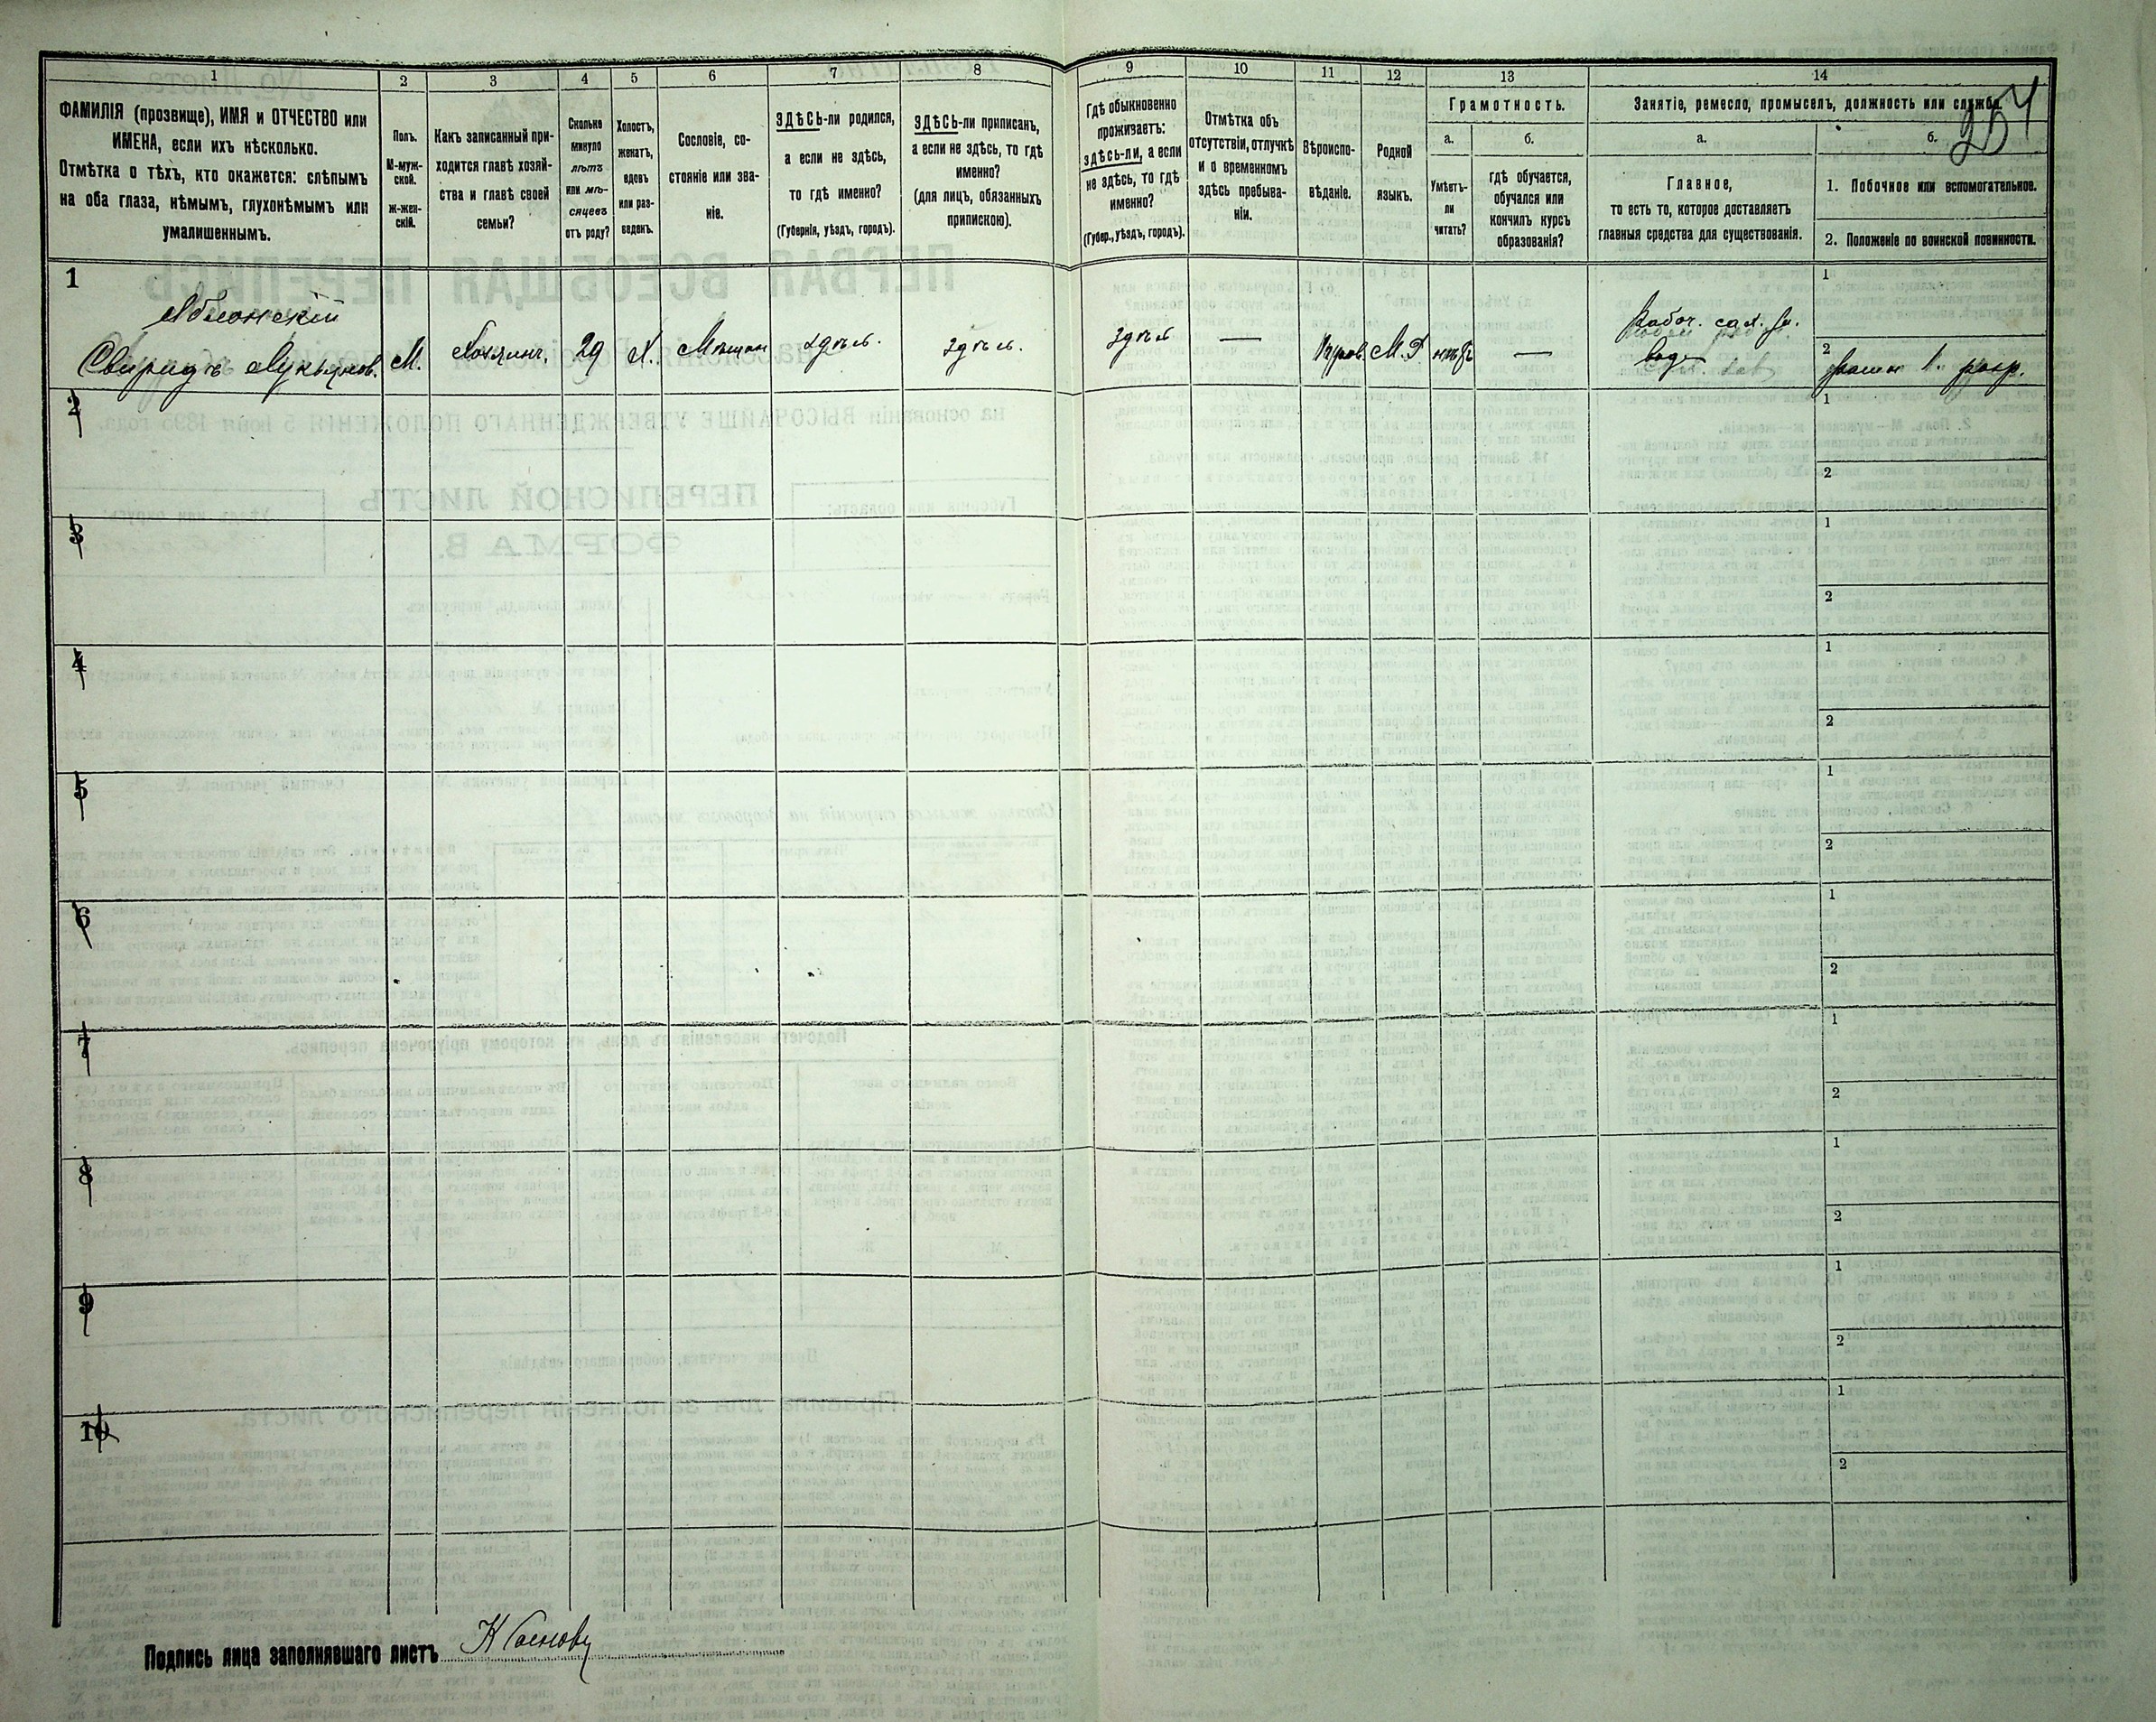 254
1
2
3
4
5
6
7
8
9
10
11
12
13
14
ФАМИЛІЯ (прозвище), ИМЯ и ОТЧЕСТВО или
ИМЕНА, если ихъ нѣсколько.
Отмѣтка о тѣхъ, кто окажется: слѣпымъ
на оба глаза, нѣмымъ, глухонѣмымъ или
умалишеннымъ.
Полъ.
М-муж-
ской.
Ж-жен-
скій.
Какъ записанный при-
ходится главѣ хозяй-
ства и главѣ своей
семьи?
Сколько
минуло
лѣтъ
или мѣ-
сяцевъ
отъ роду?
Холостъ,
женатъ,
вдовъ
или раз-
веденъ.
Сословіе, со-
стояніе или зва-
ніе.
ЗДѢСЬ-ли родился,
а если не здѣсь,
то гдѣ именно?
(Губернія, уѣздъ, городъ).
ЗДѢСЬ-ли приписанъ,
а если не здѣсь, то гдѣ
именно?
(для лицъ, обязанныхъ
припискою).
Гдѣ обыкновенно
проживаетъ:
здѣсь-ли, а если
не здѣсь, то гдѣ
именно?
(Губер., уѣздъ, городъ).
Отмѣтка объ
отсутствіи, отлучкѣ
и о временномъ
здѣсь пребыва-
ніи.
Вѣроиспо-
вѣданіе.
Родной
языкъ.
Грамотность.
а.
Умѣетъ-
ли
читать?
б.
гдѣ обучается,
обучался или
кончилъ курсъ
образованія?
Занятіе, ремесло, промыселъ, должность или служба.
а.
Главное,
то есть то, которое доставляетъ
главныя средства для существованія.
б.
1. Побочное или вспомогательное.
2. Положеніе по воинской повинности.
1
Аблонскій
Свиридъ Лукьянов.
М.
29
Х.
Мѣщан
здѣсь.
здѣсь.
здѣсь
—
М. Р.
нѣтъ
—
Рабоч. сах. за.
вода
1
2
ратн 1. разр.
2
1
2
3
1
2
4
1
2
5
1
2
6
1
2
7
1
2
8
1
2
9
1
2
10
1
2
Подпись лица заполнявшаго листъ